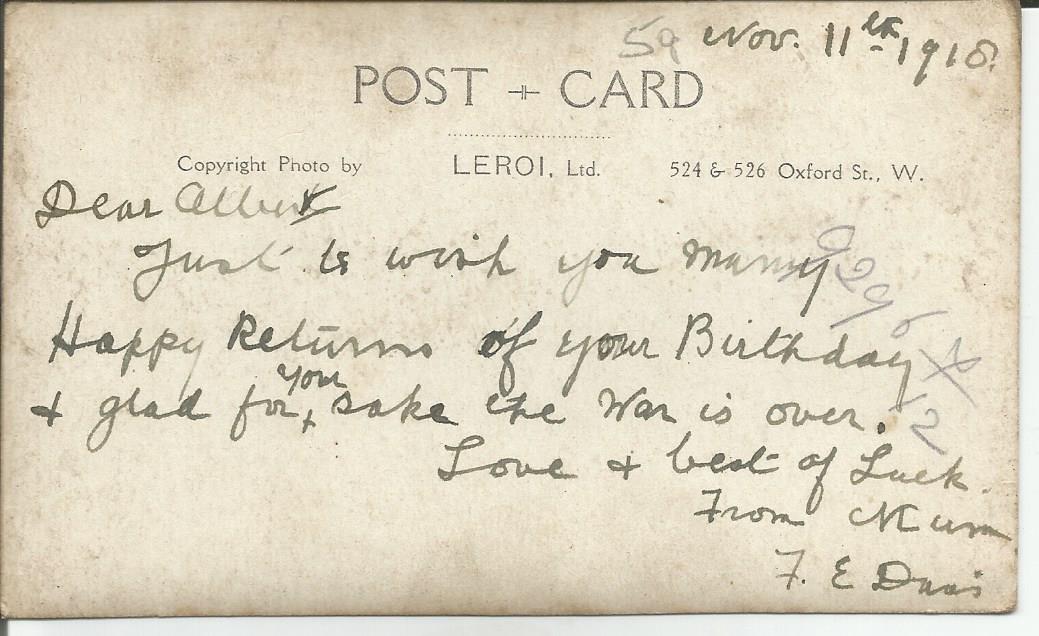 59 Nov. 11th 1918.
POST CARD
Copyright Photo by LEROI, Ltd. 524 & 526 Oxford St., W.
Dear Albert
Just to wish you many
Happy Returns of your Birthday
& glad for your sake the War is over.
Love & best of Luck.
From Mum
F. E Davis